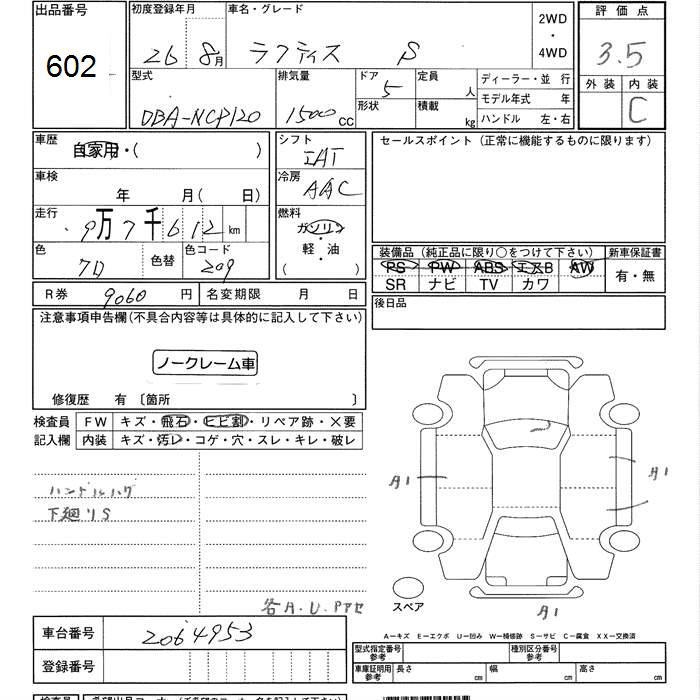 出品番号 初度登録年月 車名・グレード 2WD・4WD 評価点
602 26 8月 ラクティス S 3.5
型式 排気量 ドア 定員 人 ディーラー・並行 外装 内装
DBA-NCP120 1500cc 5 形状 積載 kg モデル年式 年 C
ハンドル 左・右
車歴 自家用・( ) シフト IAT セールスポイント (正常に機能するものに限ります)
車検 年 月( 日) 冷房 AAC
走行 9万7千612km 燃料 ガソリン・軽・油 ( )
色 クロ 色替 色コード 209
装備品 (純正品に限り○をつけて下さい) 新車保証書
PS PW ABS エアB AW 有・無
SR ナビ TV カワ
R券 9060円 名変期限 月 日 後日品
注意事項申告欄(不具合内容等は具体的に記入して下さい)
ノークレーム車
修復歴 有 〔箇所 〕
検査員 FW キズ・飛石・ヒビ割・リペア跡・×要
記入欄 内装 キズ・汚レ・コゲ・穴・スレ・キレ・破レ
ハンドルハゲ
下廻りS
A1 A1
各A.U.Pアセ
スペア A1
車台番号 2064953
A−キズ E−エクボ U−凹み W−補修跡 S−サビ C−腐食 XX−交換済
登録番号
型式指定番号 参考 種別区分番号 参考
車庫証明用 参考 長さ cm 幅 cm 高さ cm